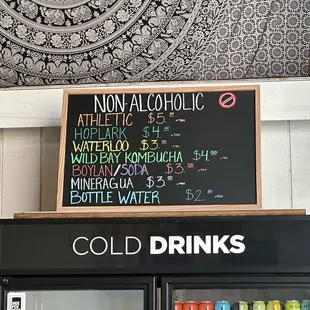 NON-ALCOHOLIC
ATHLETIC $5.00
HOPLARK $4.00
WATERLOO $3.00
WILD BAY KOMBUCHA $4.00
BOYLAN/SODA $3.00
MINERAGUA $3.00
BOTTLE WATER $2.00
COLD DRINKS